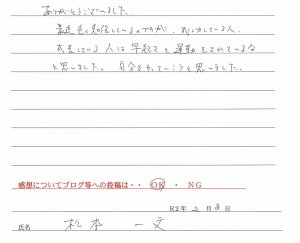 ありがとうございました。
最近色々勉強しているのですが、成功している人、
成長している人は早起きと運動をされているな
と思いました。自分もやっていこうと思いました。
感想についてブログ等への投稿は・・ OK ・ NG
R2年 2月 8日
氏名 松本 一文